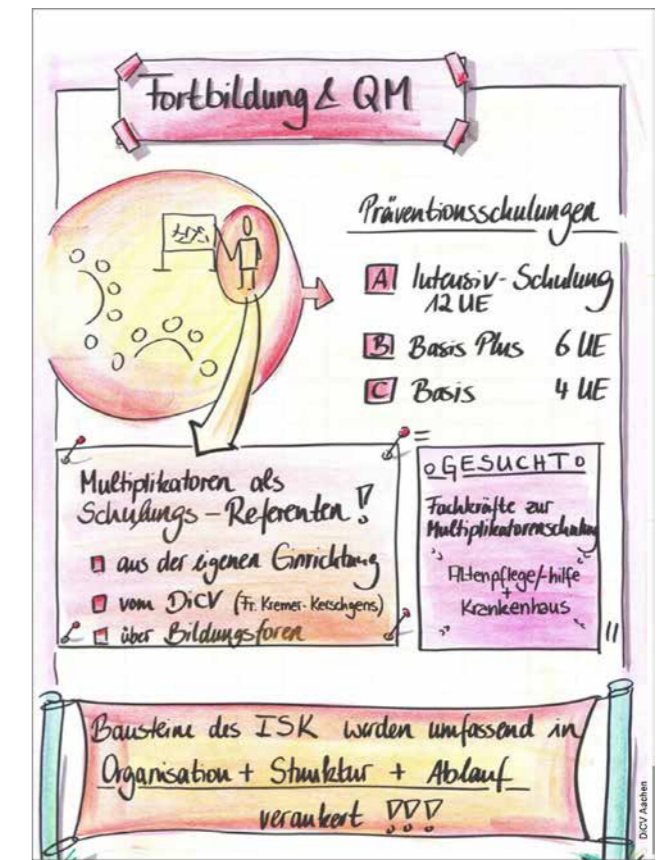 Fortbildung & QM
Präventionsschulungen
A Intensiv-Schulung
12 UE
B Basis Plus 6 UE
C Basis 4 UE
Multiplikatoren als
Schulungs-Referenten!
aus der eigenen Einrichtung
vom DiCV (Fr. Kremer-Kerschgens)
über Bildungsforen
GESUCHT
Fachkräfte zur
Multiplikatorenschulung
Altenpflege/-hilfe
+
Krankenhaus
Bausteine des ISK werden umfassend in
Organisation + Struktur + Ablauf
verankert !!!
DiCV Aachen